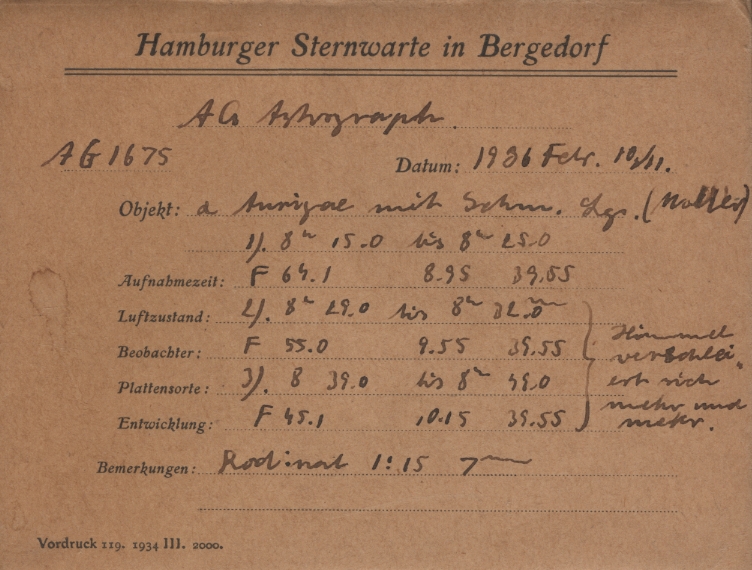 Hamburger Sternwarte in Bergedorf
AG Astrograph.
AG 1675
Datum: 1936 Febr. 10./11.
Objekt: α Aurigae mit Schm. Lgs. (Möller)
1). 8ʰ 15.0 bis 8ʰ 25.0
Aufnahmezeit: F 64.1 8.95 39.55
Luftzustand: 2). 8ʰ 29.0 bis 8ʰ 32.0ᵐ
Beobachter: F 55.0 9.55 39.55
Plattensorte: 3). 8 39.0 bis 8ʰ 49.0
Entwicklung: F 45.1 10.15 39.55
Himmel
verschlei„
ert sich
mehr und
mehr.
Bemerkungen: Rodinal 1:15 7ᵐ
Vordruck 119. 1934 III. 2000.